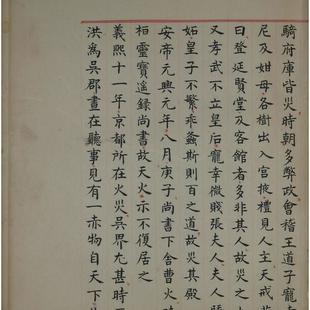 騎府庫皆災時朝多弊政會稽王道子寵
尼及姏母各樹出入宮掖禮見人主天戒
曰登延賢堂及客館者多非其人故災之
又孝武不立皇后寵幸微賤張夫人夫人
妬皇子不繁乖螽斯則百之道故災其殿
安帝元興元年八月庚子尚書下舍曹火
桓靈寶遥録尚書故天火示不復居之
義熙十一年京都所在火災吴界尤甚時
洪爲吴郡晝在聽事見有一赤物自天下